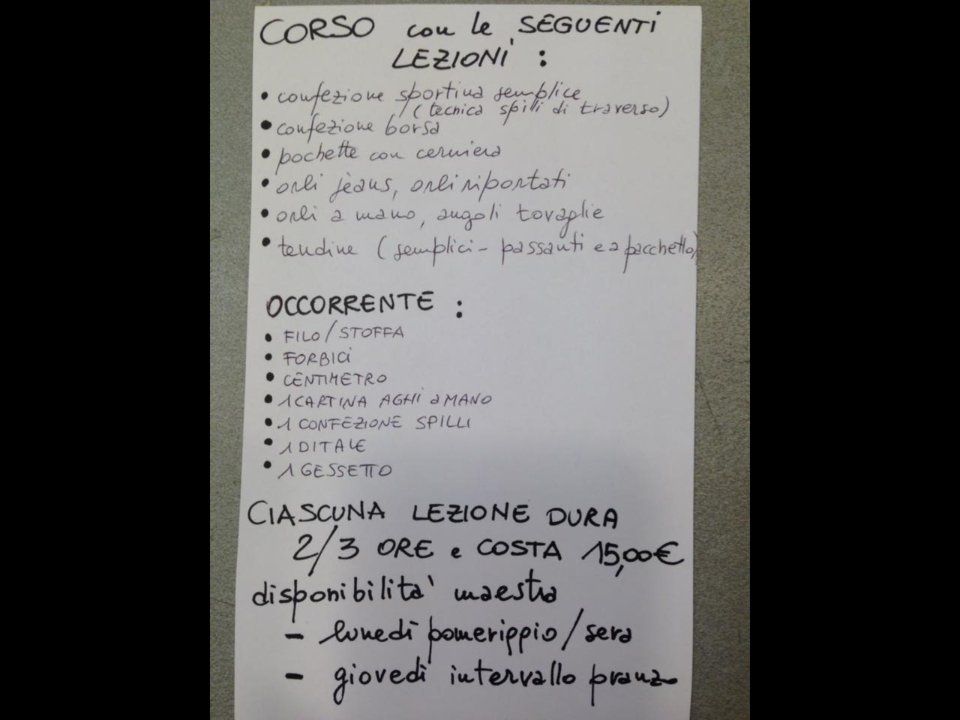 CORSO con le SEGUENTI
LEZIONI :
• confezione sportina semplice
(tecnica spilli di traverso)
• confezione borsa
• pochette con cerniera
• orli jeans, orli riportati
• orli a mano, angoli tovaglie
• tendine (semplici - passanti e a pacchetto)
OCCORRENTE :
• FILO/STOFFA
• FORBICI
• CENTIMETRO
• 1 CARTINA AGHI a MANO
• 1 CONFEZIONE SPILLI
• 1 DITALE
• 1 GESSETTO
CIASCUNA LEZIONE DURA
2/3 ORE e COSTA 15,00€
disponibilita' maestra
- lunedì pomeriggio/sera
- giovedì intervallo pranzo